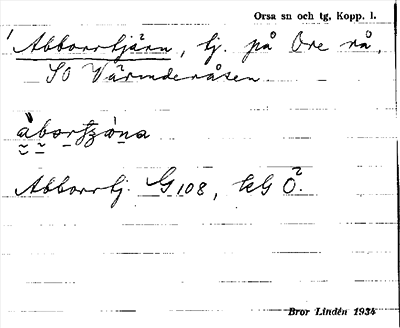 Orsa sn och tg, Kopp. l.
1 Abborrtjärn, tj. på Ore rå,
SO Värmderåsen.
Abborrtj. G 108, kG Ö2.
Bror Lindén 1934